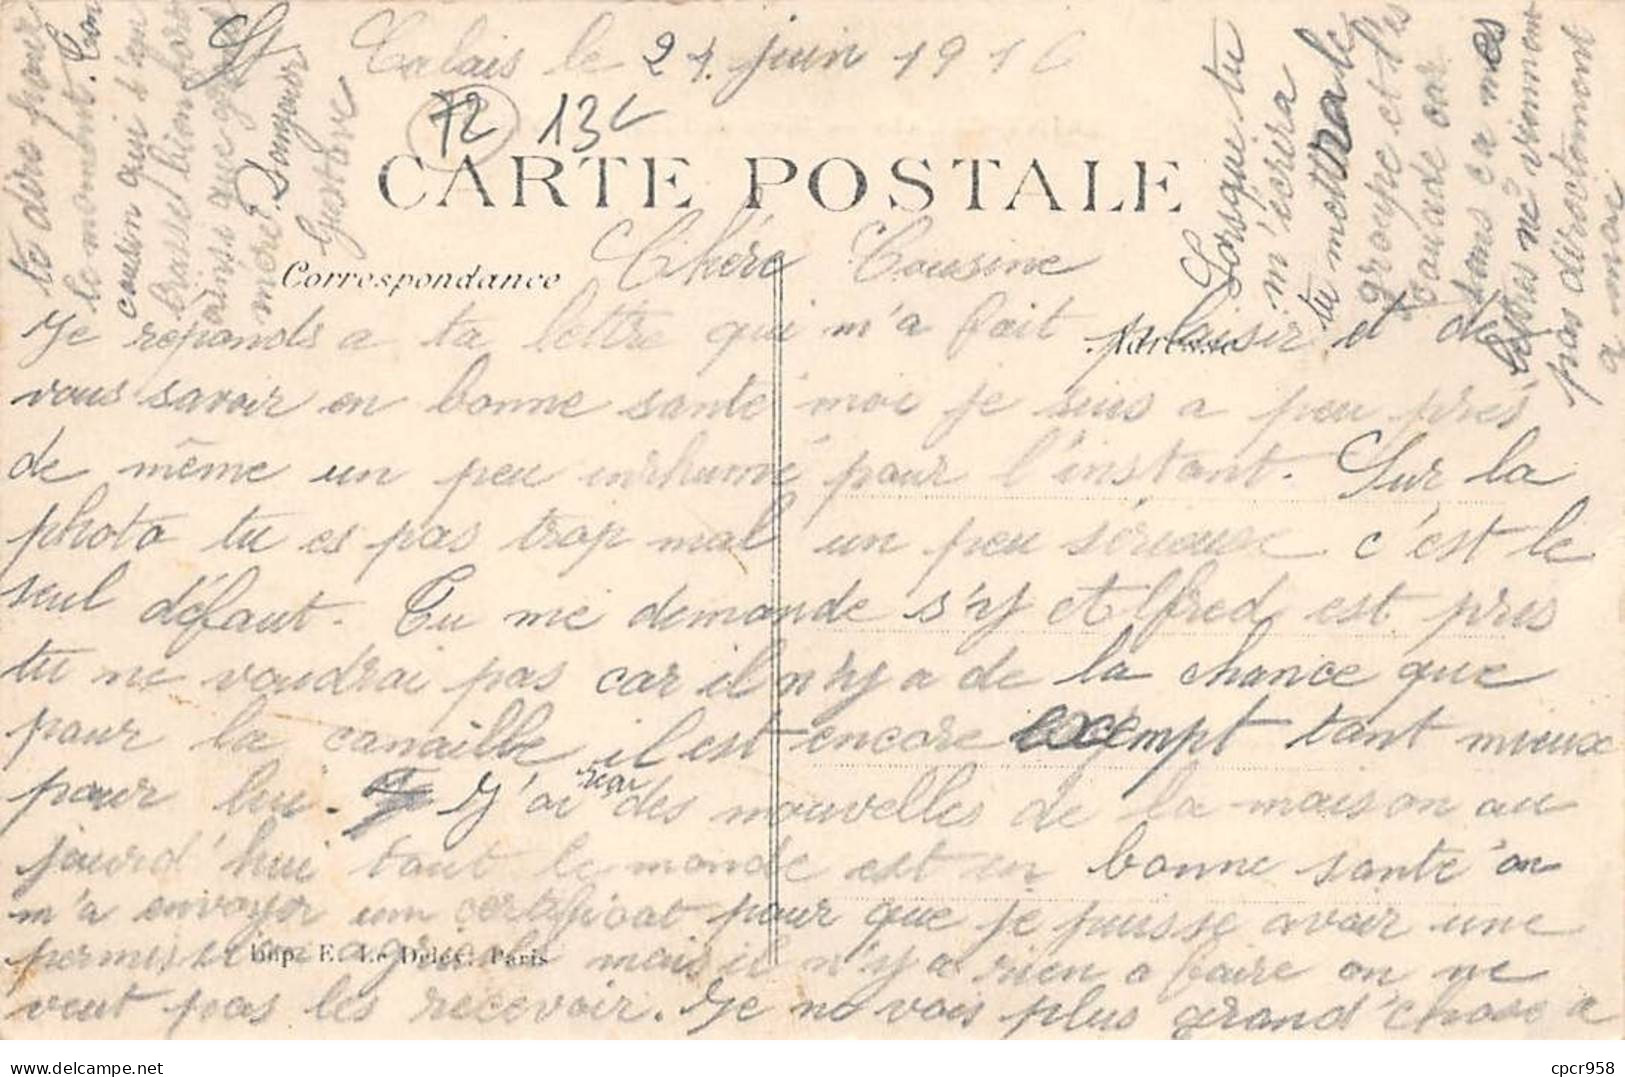 St Calais le 21 juin 1916
72 13c
CARTE POSTALE
Correspondance
Adresse
Chére Cousine
Je reponds a ta lettre qui m'a fait plaisir et de
vous savoir en bonne santé moi je suis a peu prés
de même un peu enrhumé pour l'instant. Sur la
photo tu es pas trop mal un peu sérieuse c'est le
seul défaut. Tu me demande s'y et Alfred est pris
tu ne voudrai pas car il n'y a de la chance que
pour la canaille il est encore exempt tant mieux
pour lui. J'ai reçu des nouvelles de la maison au
jourd'hui tout le monde est en bonne santé on
m'a envoyer um certificat pour que je puisse avoir une
permission agricole mais il n'y a rien a faire on ne
veut pas les recevoir. Je ne vois plus grand'chose a
te dire pour
le moment. Ton
cousin qui t'en
brasse bien fort
ainsi que grand
mére. Bonjour
Gustave
Lorsque tu
m'écrira
tu mettra le
groupe et l'es
couade car
dans ca mes
lettres ne viennent
pas directement
a moi
Imp. E. Le Deley, Paris
cpcr958